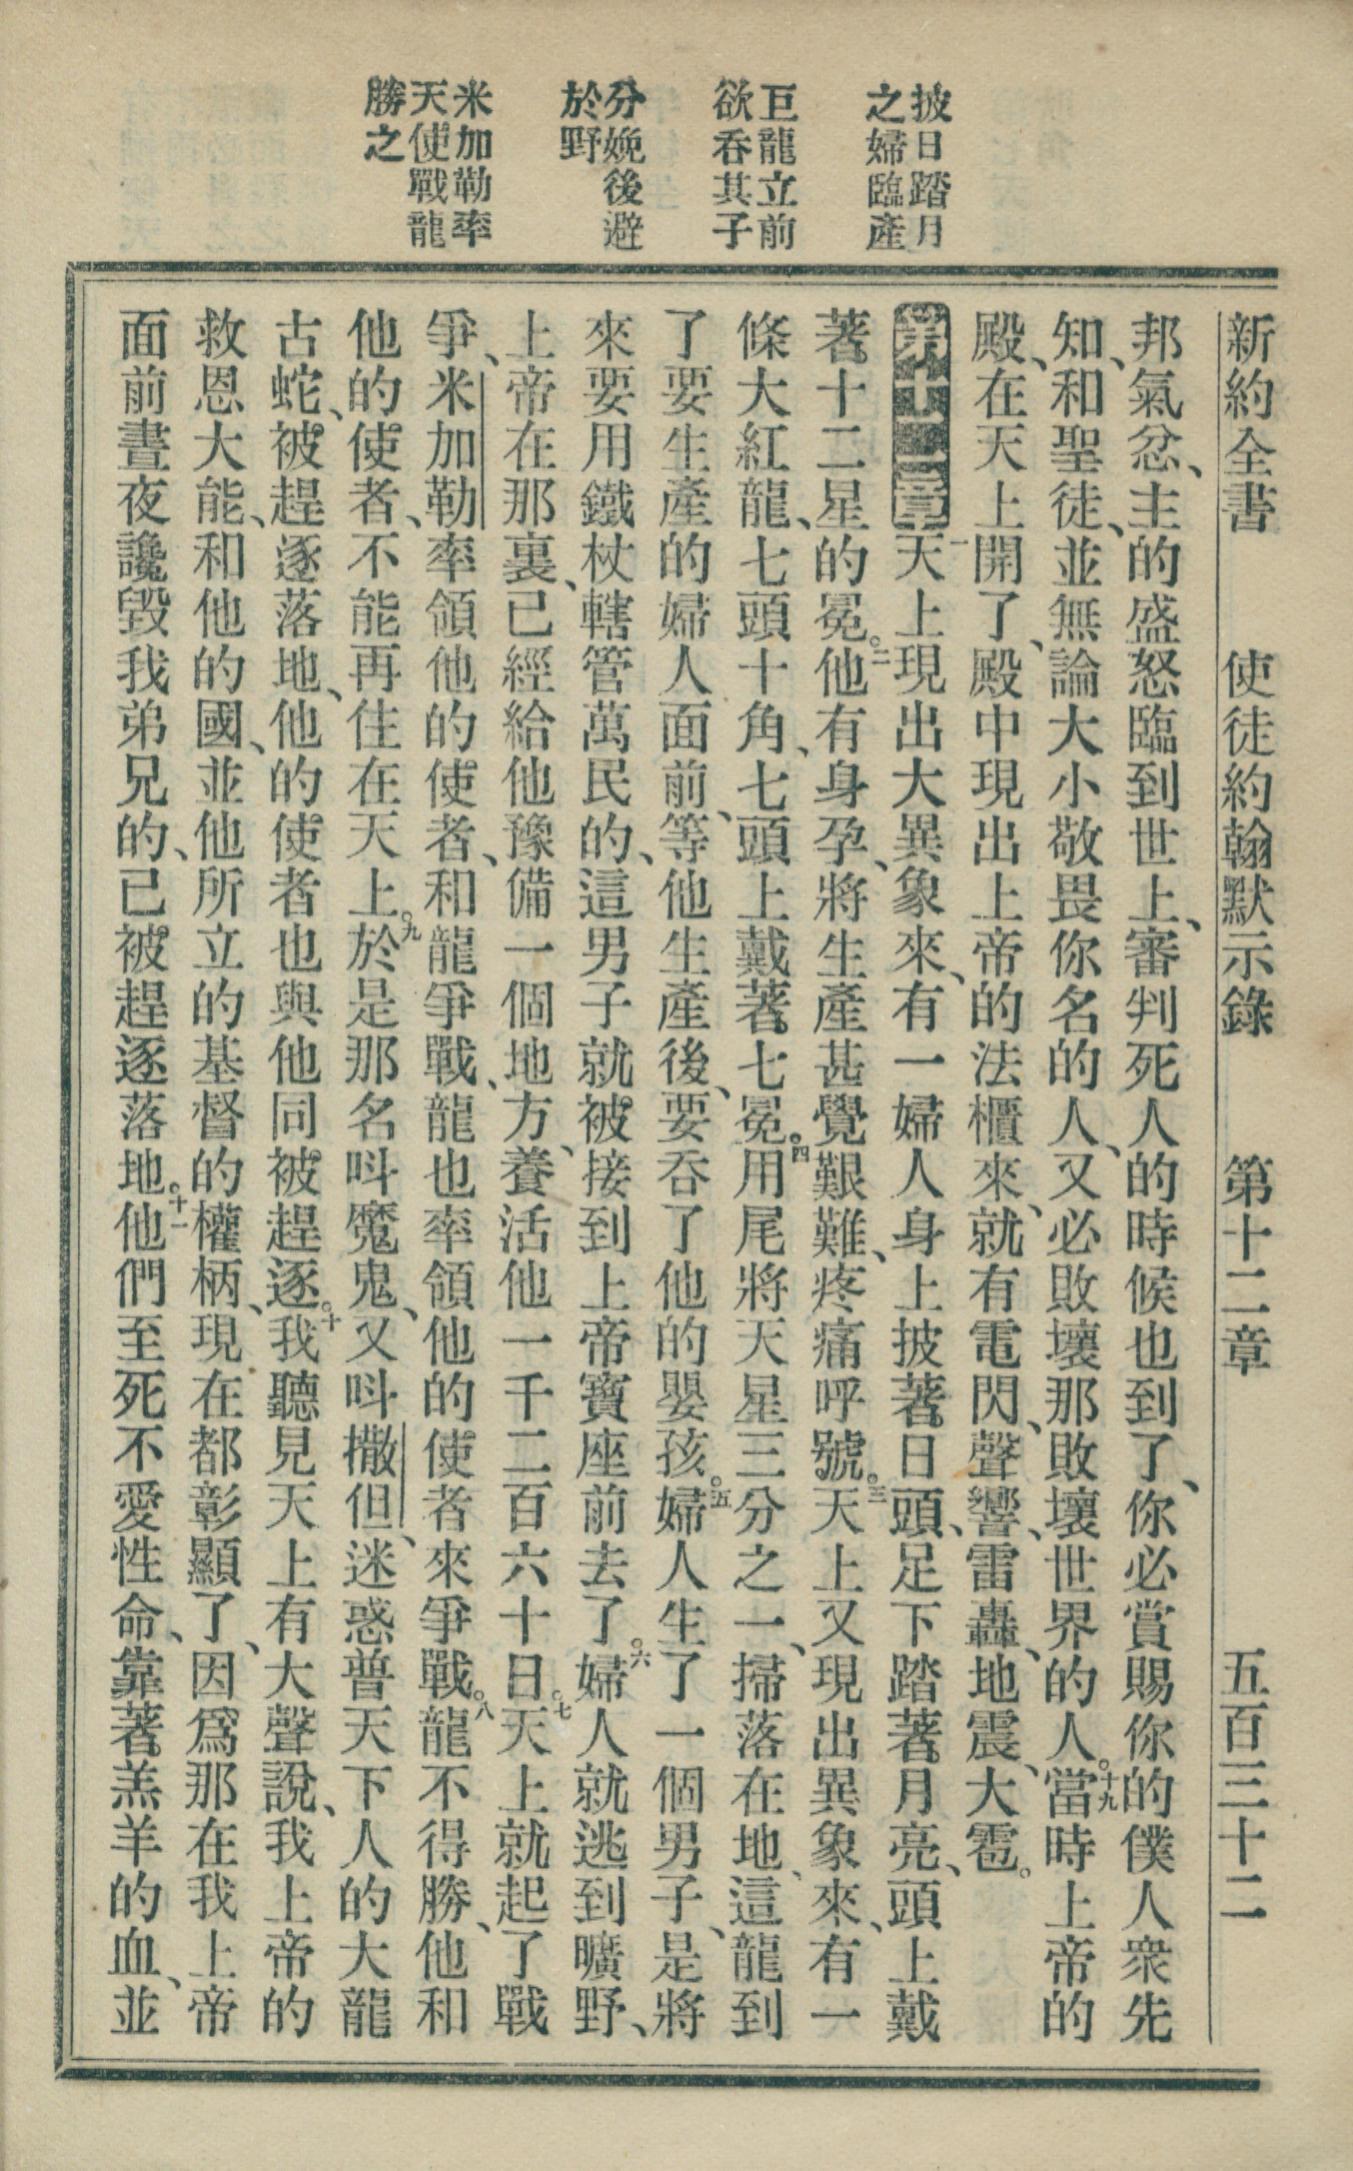 新約全書　使徒約翰默示錄　第十二章　五百三十二
披日踏月
之婦臨產
巨龍立前
欲吞其子
分娩後避
於野
米加勒率
天使戰龍
勝之
邦氣忿、主的盛怒臨到世上、審判死人的時候也到了、你必賞賜你的僕人衆先
知、和聖徒、並無論大小敬畏你名的人、又必敗壞那敗壞世界的人。十九當時上帝的
殿、在天上開了、殿中現出上帝的法櫃來、就有電閃、聲響、雷轟、地震、大雹。
第十二章一天上現出大異象來、有一婦人身上披著日頭、足下踏著月亮、頭上戴
著十二星的冕。二他有身孕、將生產甚覺艱難、疼痛呼號。三天上又現出異象來、有一
條大紅龍、七頭十角、七頭上戴著七冕。四用尾將天星三分之一、掃落在地、這龍到
了要生產的婦人面前、等他生產後、要吞了他的嬰孩。五婦人生了一個男子、是將
來要用鐵杖轄管萬民的、這男子就被接到上帝寶座前去了。六婦人就逃到曠野、
上帝在那裏、已經給他豫備一個地方、養活他一千二百六十日。七天上就起了戰
爭、米加勒率領他的使者、和龍爭戰、龍也率領他的使者來爭戰。八龍不得勝、他和
他的使者、不能再住在天上。九於是那名呌魔鬼、又呌撒但、迷惑普天下人的大龍
古蛇、被趕逐落地、他的使者也與他同被趕逐。十我聽見天上有大聲說、我上帝的
救恩大能、和他的國、並他所立的基督的權柄、現在都彰顯了、因爲那在我上帝
面前晝夜讒毀我弟兄的、已被趕逐落地。十一他們至死不愛性命、靠著羔羊的血、並